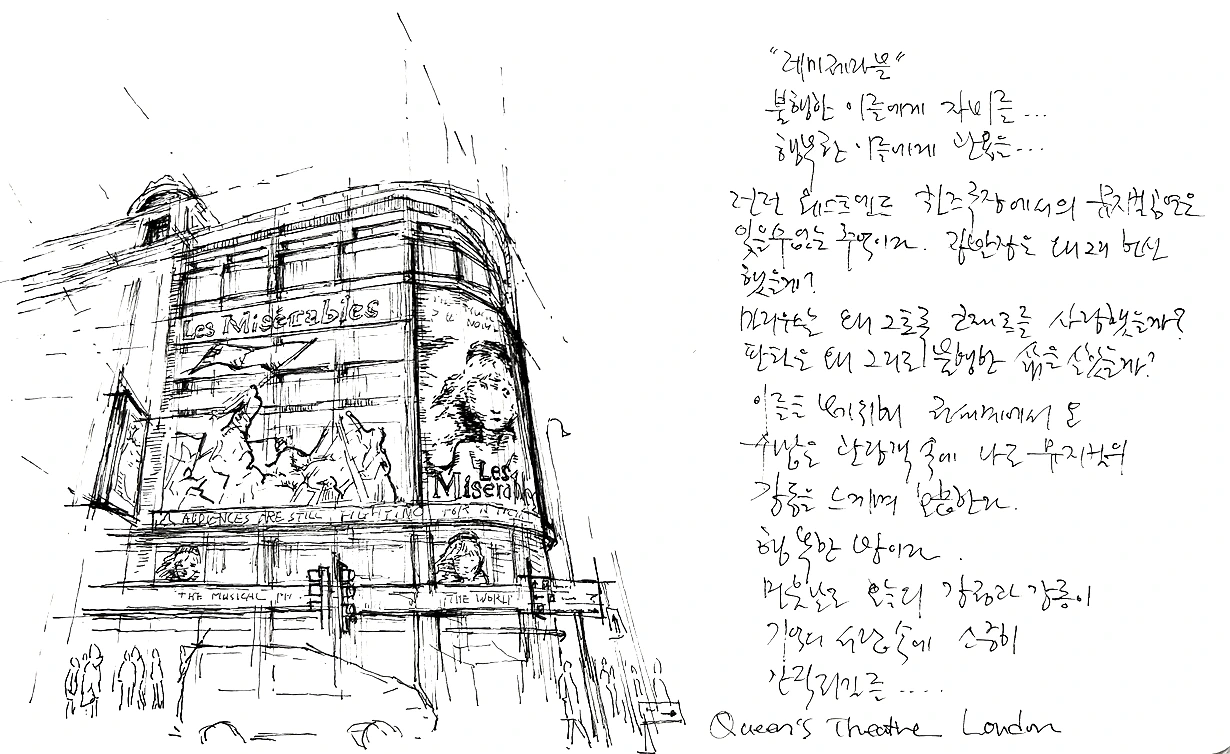 Les Misérables
Les
Misérables
AUDIENCES ARE STILL FIGHTING FOR A TICKET
THE MUSICAL
THE WORLD
"레미제라블"
불행한 이들에게 자비를...
행복한 이들에게 반성을...
런던 웨스트엔드 퀸즈극장에서의 뮤지컬공연은
잊을수없는 추억이다. 장발장은 왜 그래 헌신
했을까?
마리우스는 왜 그토록 코제트를 사랑했을까?
판틴은 왜 그리도 불행한 삶을 살았을까?
이들을 보기위해 전세계에서 온
수많은 관람객 속에 나도 뮤지컬의
감동을 느끼며 함한다.
행복한 밤이다.
먼훗날도 오늘의 감동이
기억의 서랍속에 소중히
간직되길를 ....
Queen's Theatre London